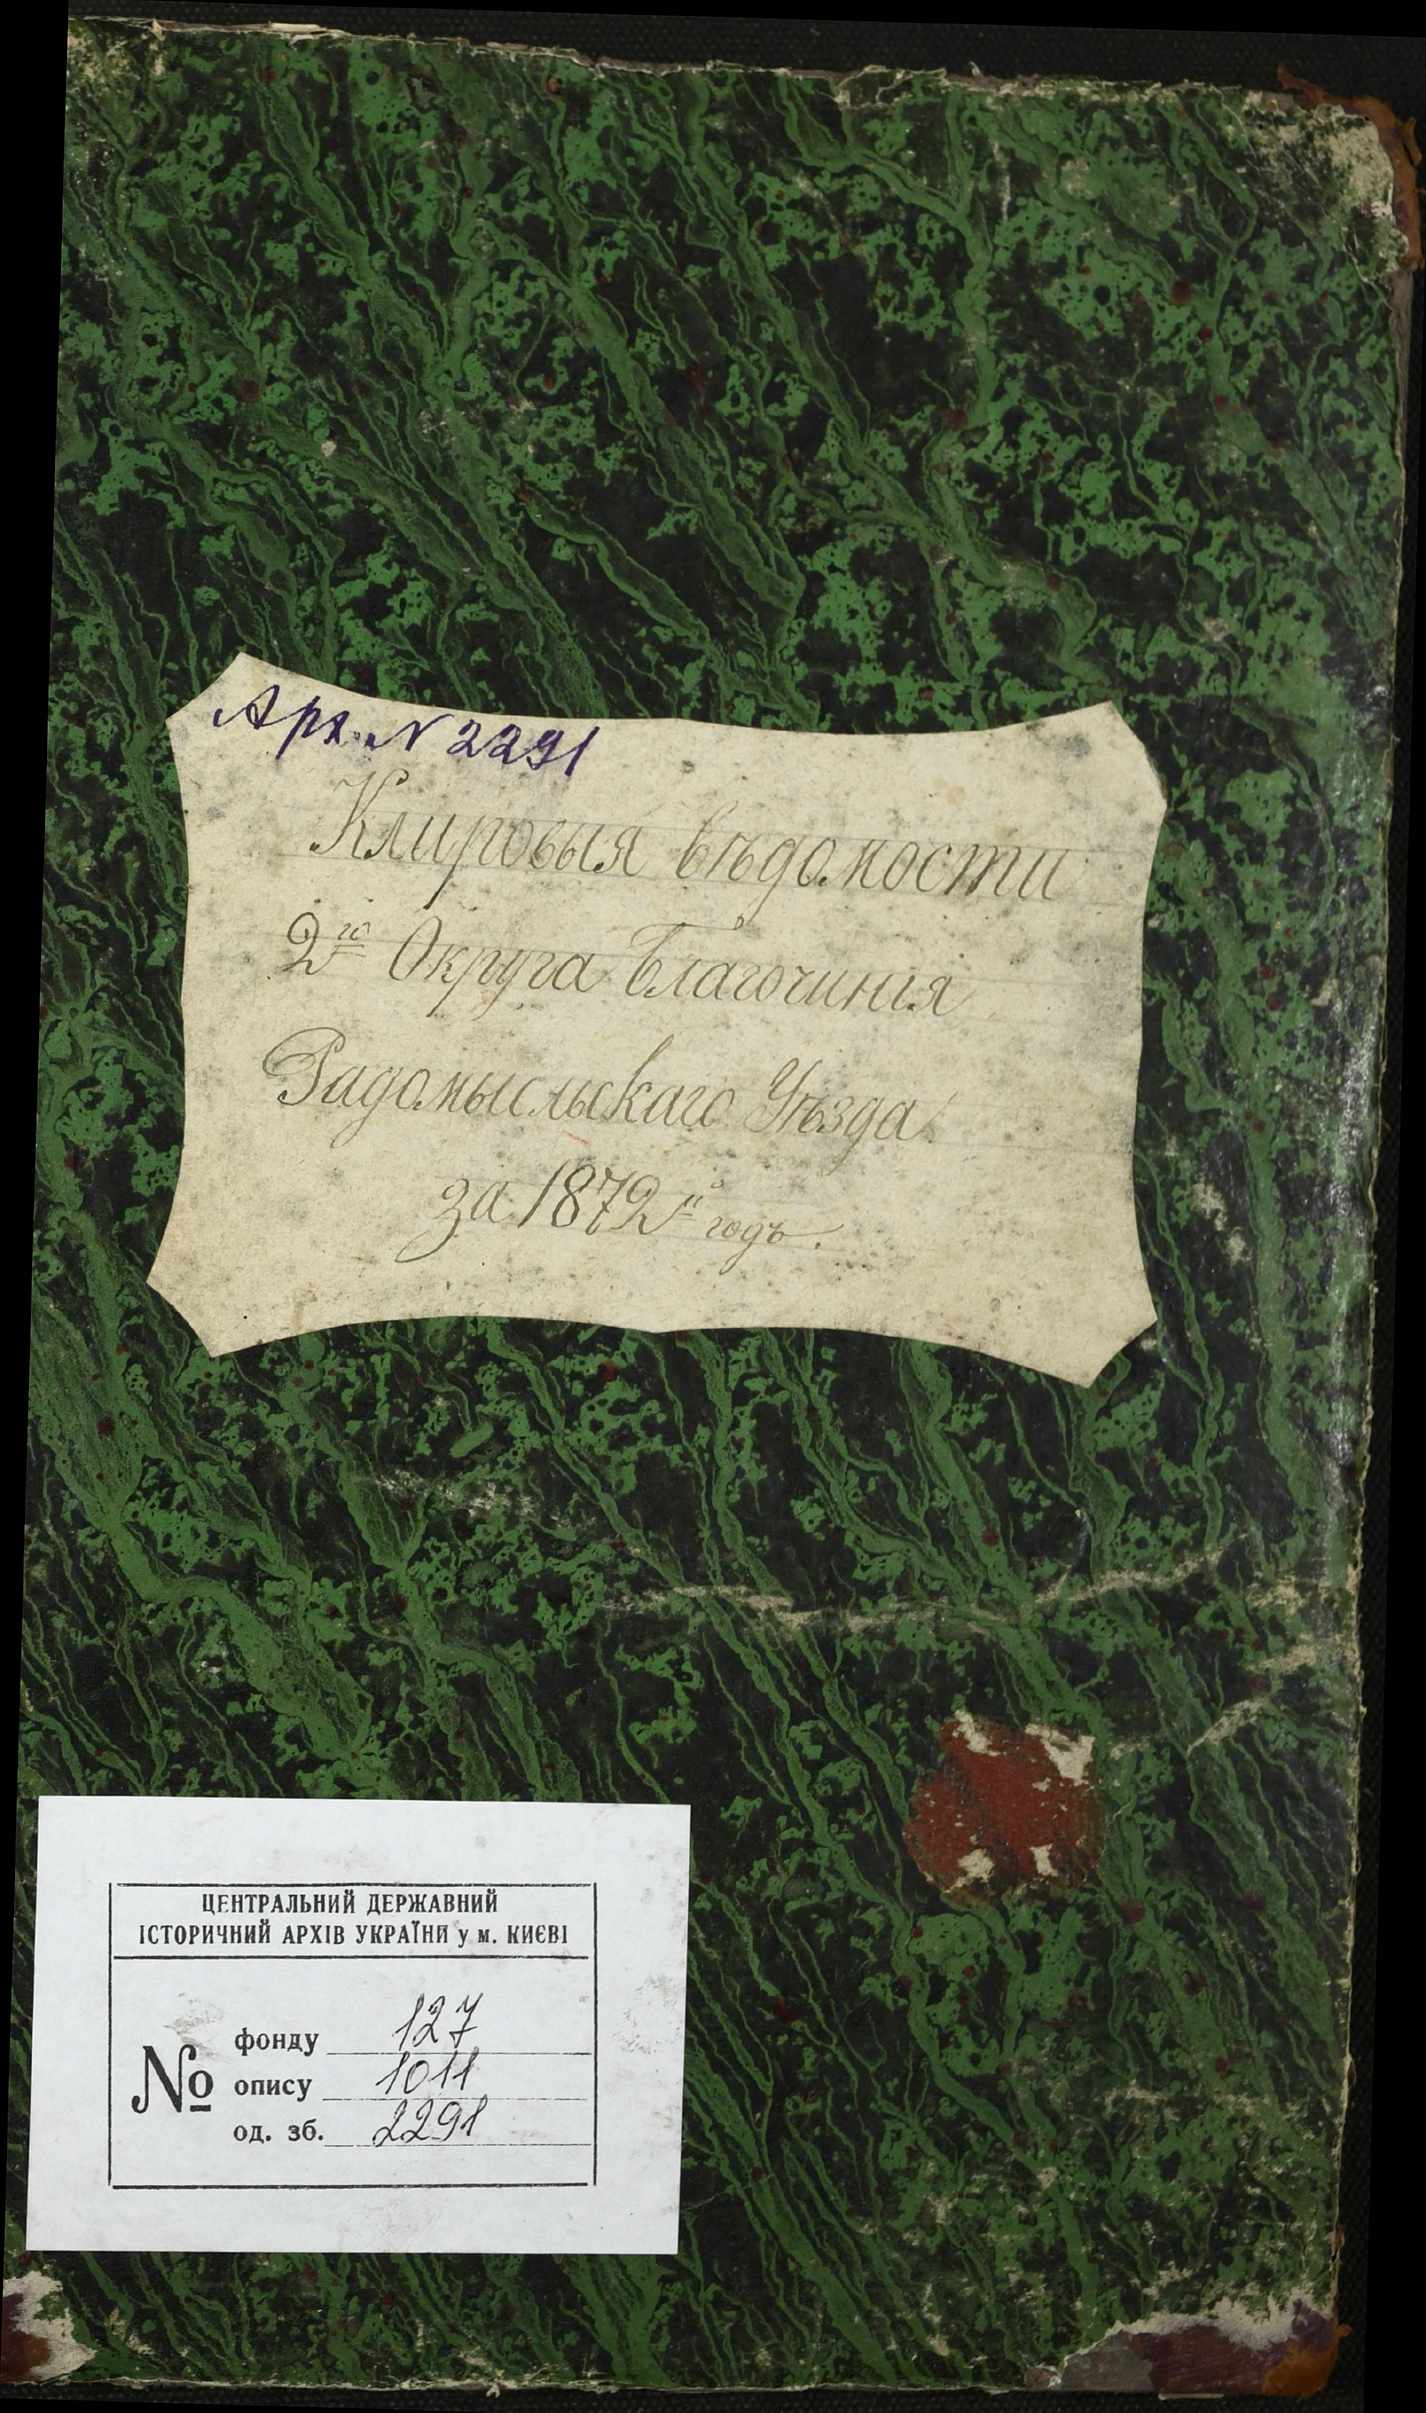 Арх. № 2291
Клировыя вѣдомости
2го Округа Благочинія
Радомысльскаго Уѣзда
за 1872й годъ.
ЦЕНТРАЛЬНИЙ ДЕРЖАВНИЙ
ІСТОРИЧНИЙ АРХІВ УКРАЇНИ у м. КИЄВІ
№
фонду 127
опису 1011
од. зб. 2291